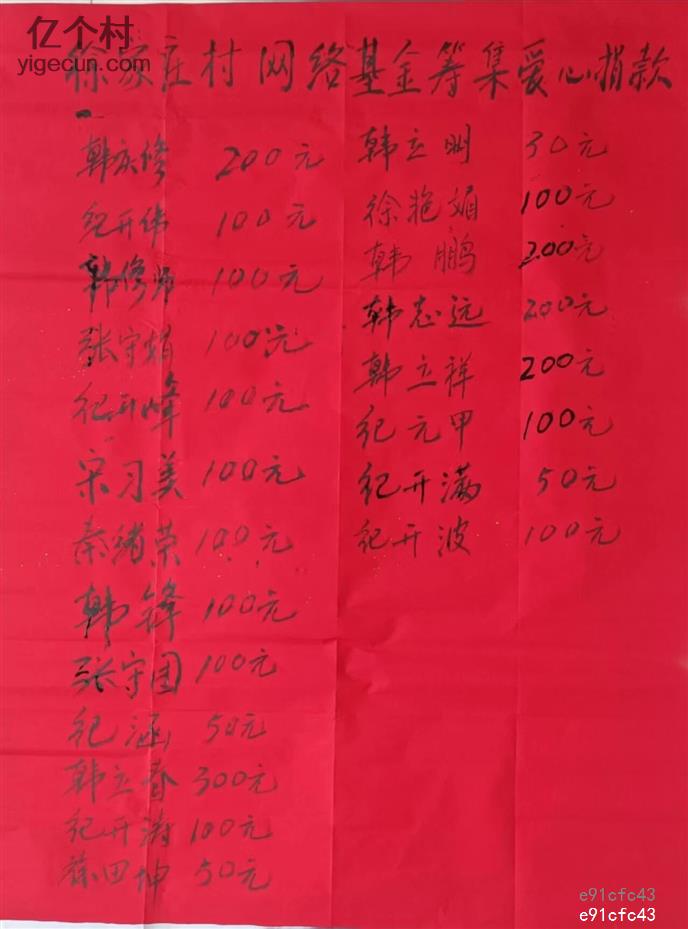 亿个村
yigecun.com
徐家庄村网络基金筹集爱心捐款
韩庆修 200元
纪开伟 100元
韩修师 100元
张守娟 100元
纪开峰 100元
宋习美 100元
秦绪荣 100元
韩锋 100元
张守团 100元
纪涵 50元
韩立春 300元
纪开涛 100元
田坤 50元
韩立明 30元
徐艳媚 100元
韩鹏 200元
韩志远 200元
韩立祥 200元
纪元甲 100元
纪开满 50元
纪开波 100元
e91cfc43
e91cfc43